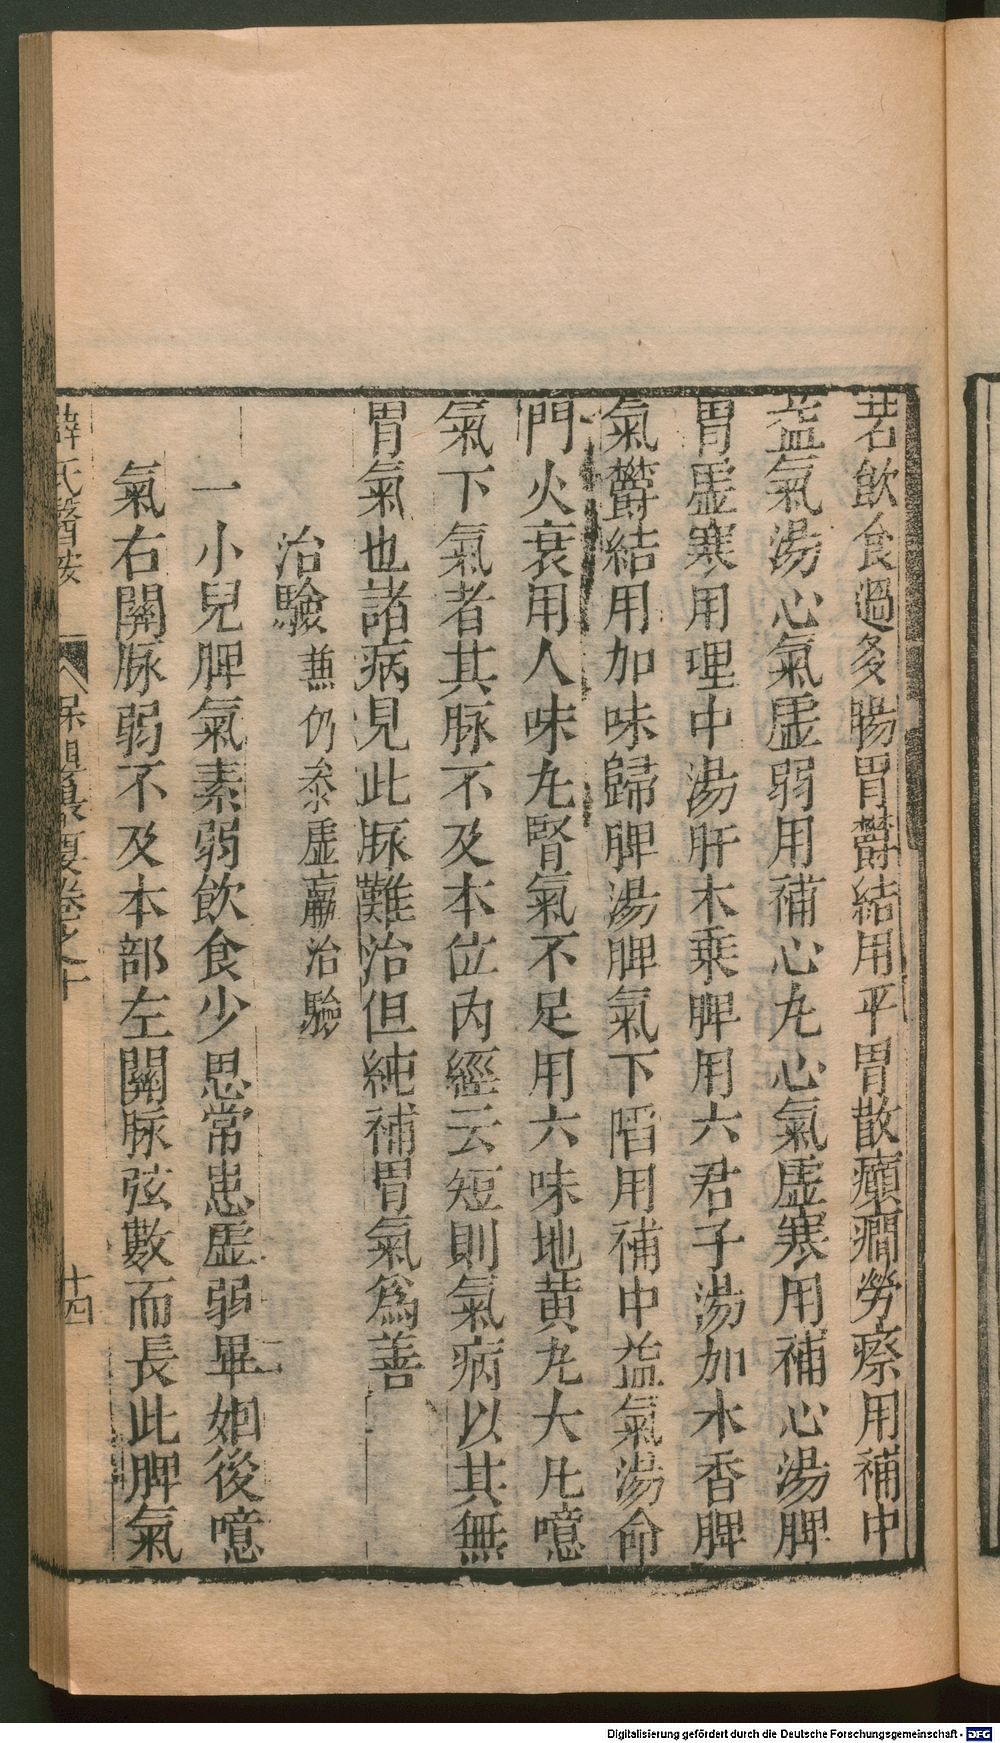 若飲食過多腸胃鬱結用平胃散癲癇勞瘵用補中
益氣湯心氣虛弱用補心丸心氣虛寒用補心湯脾
胃虛寒用理中湯肝木乘脾用六君子湯加木香脾
氣鬱結用加味歸脾湯脾氣下陷用補中益氣湯命
門火衰用八味丸腎氣不足用六味地黄丸大凡噫
氣下氣者其脉不及本位内經云短則氣病以其無
胃氣也諸病見此脉難治但純補胃氣爲善
治驗 兼仍叅虛羸治驗
一小兒脾氣素弱飲食少思常患虛弱畢姻後噫
氣右關脉弱不及本部左關脉弦數而長此脾氣
薛氏醫按 保嬰撮要卷之十 十四
Digitalisierung gefördert durch die Deutsche Forschungsgemeinschaft - DFG